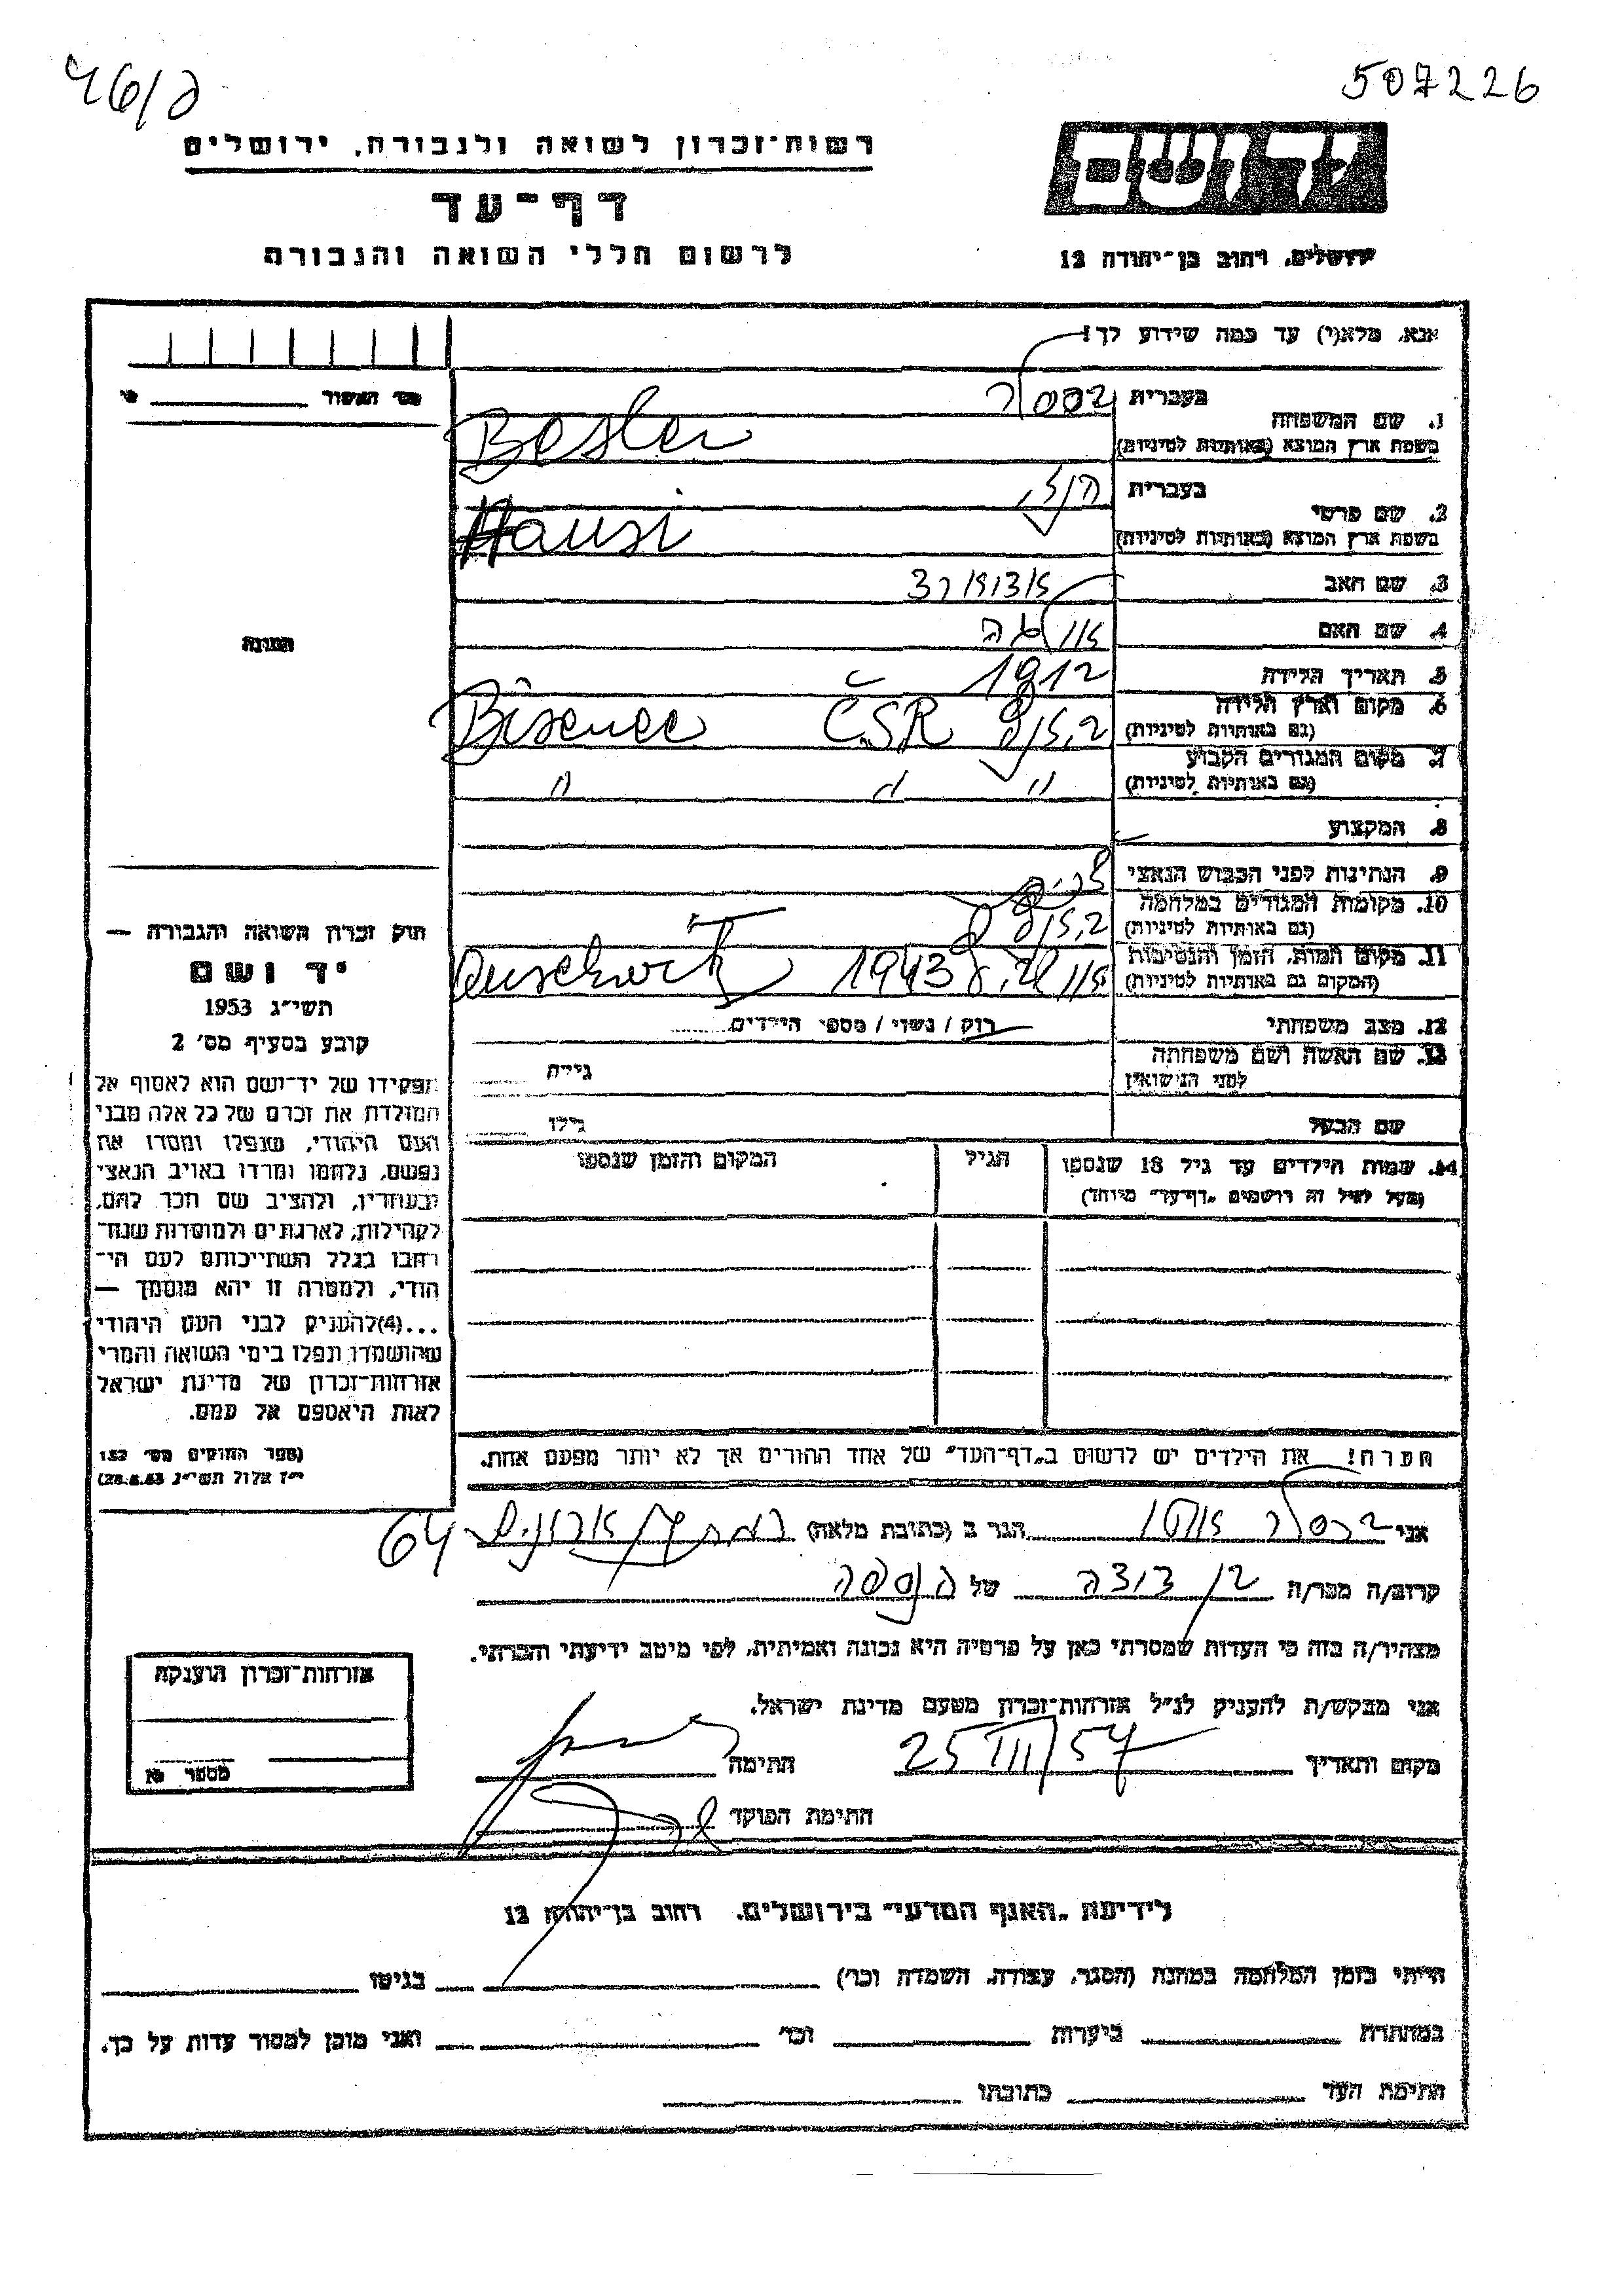 46/ק
507226
רשות־זכרון לשואה ולגבורה, ירושלים
דף־עד
לרשום חללי השואה והגבורה
יד ושם
ירושלים, רחוב בן־יהודה 12
אנא, מלא(י) עד כמה שידוע לך!
מס׳ האשור
1. שם המשפחה
בעברית בסלר
בשפת ארץ המוצא (באותיות לטיניות) Besler
2. שם פרטי
בעברית הנזי
בשפת ארץ המוצא (באותיות לטיניות) Hansi
3. שם האב
4. שם האם
5. תאריך הלידה 1912
6. מקום וארץ הלידה
(גם באותיות לטיניות) Bisenec ČSR
7. מקום המגורים הקבוע
(גם באותיות לטיניות) " " "
8. המקצוע
9. הנתינות לפני הכבוש הנאצי
10. מקומות המגורים במלחמה
(גם באותיות לטיניות)
11. מקום המות, הזמן והנסיבות
(המקום גם באותיות לטיניות) 1943 Auschwitz
12. מצב משפחתי רוק / נשוי / מספר הילדים
13. שם האשה ושם משפחתה
לפני הנישואין גילה
שם הבעל גילו
14. שמות הילדים עד גיל 18 שנספו הגיל המקום והזמן שנספו
(מעל לגיל זה רושמים "דף־עד" מיוחד)
הערה! את הילדים יש לרשום ב"דף־העד" של אחד ההורים אך לא יותר מפעם אחת.
התמונה
חוק זכרון השואה והגבורה —
יד ושם
תשי״ג 1953
קובע בסעיף מס׳ 2
תפקידו של יד־ושם הוא לאסוף אל
המולדת את זכרם של כל אלה מבני
העם היהודי, שנפלו ומסרו את
נפשם, נלחמו ומרדו באויב הנאצי
ובעוזריו, ולהציב שם וזכר להם,
לקהילות, לארגונים ולמוסדות שנח־
רבו בגלל השתייכותם לעם הי־
הודי, ולמטרה זו יהא מוסמך —
...(4)להעניק לבני העם היהודי
שהושמדו ונפלו בימי השואה והמרי
אזרחות־זכרון של מדינת ישראל
לאות היאספם אל עמם.
(ספר החוקים מס׳ 132
י״ז אלול תשי״ג 28.8.53)
אני בסלר הגר ב (כתובת מלאה) 64
קרוב/ה מכר/ה בן דודה של הנספה
מצהיר/ה בזה כי העדות שמסרתי כאן על פרטיה היא נכונה ואמיתית, לפי מיטב ידיעתי והכרתי.
אני מבקש/ת להעניק לנ״ל אזרחות־זכרון מטעם מדינת ישראל.
מקום ותאריך 25 III/57 חתימה
חתימת הפוקד
אזרחות־זכרון הוענקה
מספר
לידיעת "האגף המדעי" בירושלים. רחוב בן־יהודה 12
הייתי בזמן המלחמה במחנה (הסגר, עבודה, השמדה וכו׳) בגיטו
במחתרת ביערות וכו׳ ואני מוכן למסור עדות על כך.
חתימת העד כתובתו